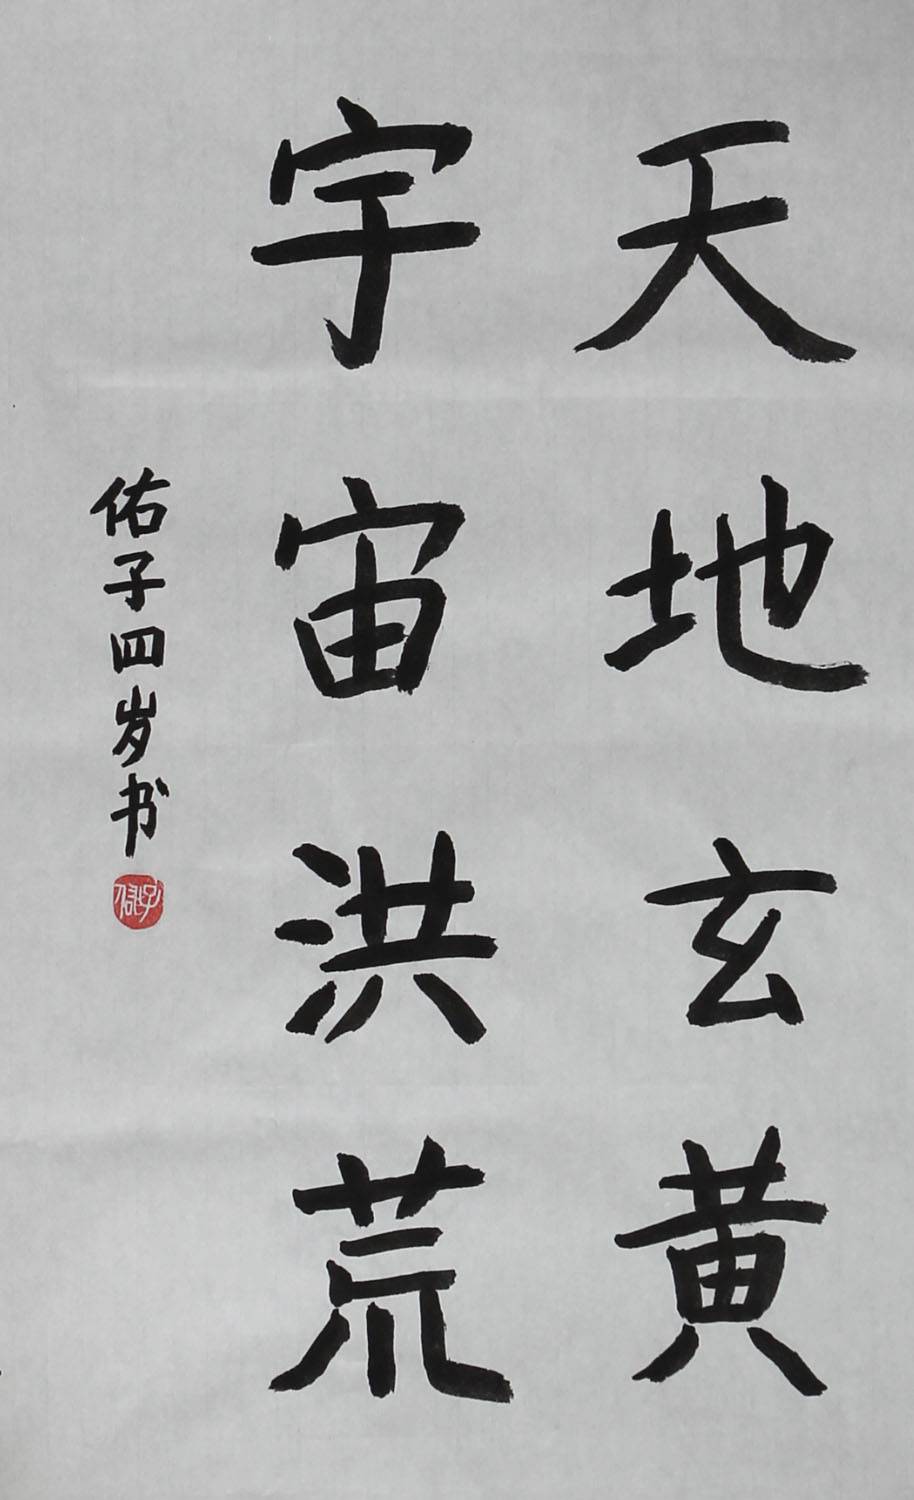 天地玄黄
宇宙洪荒
佑子四岁书